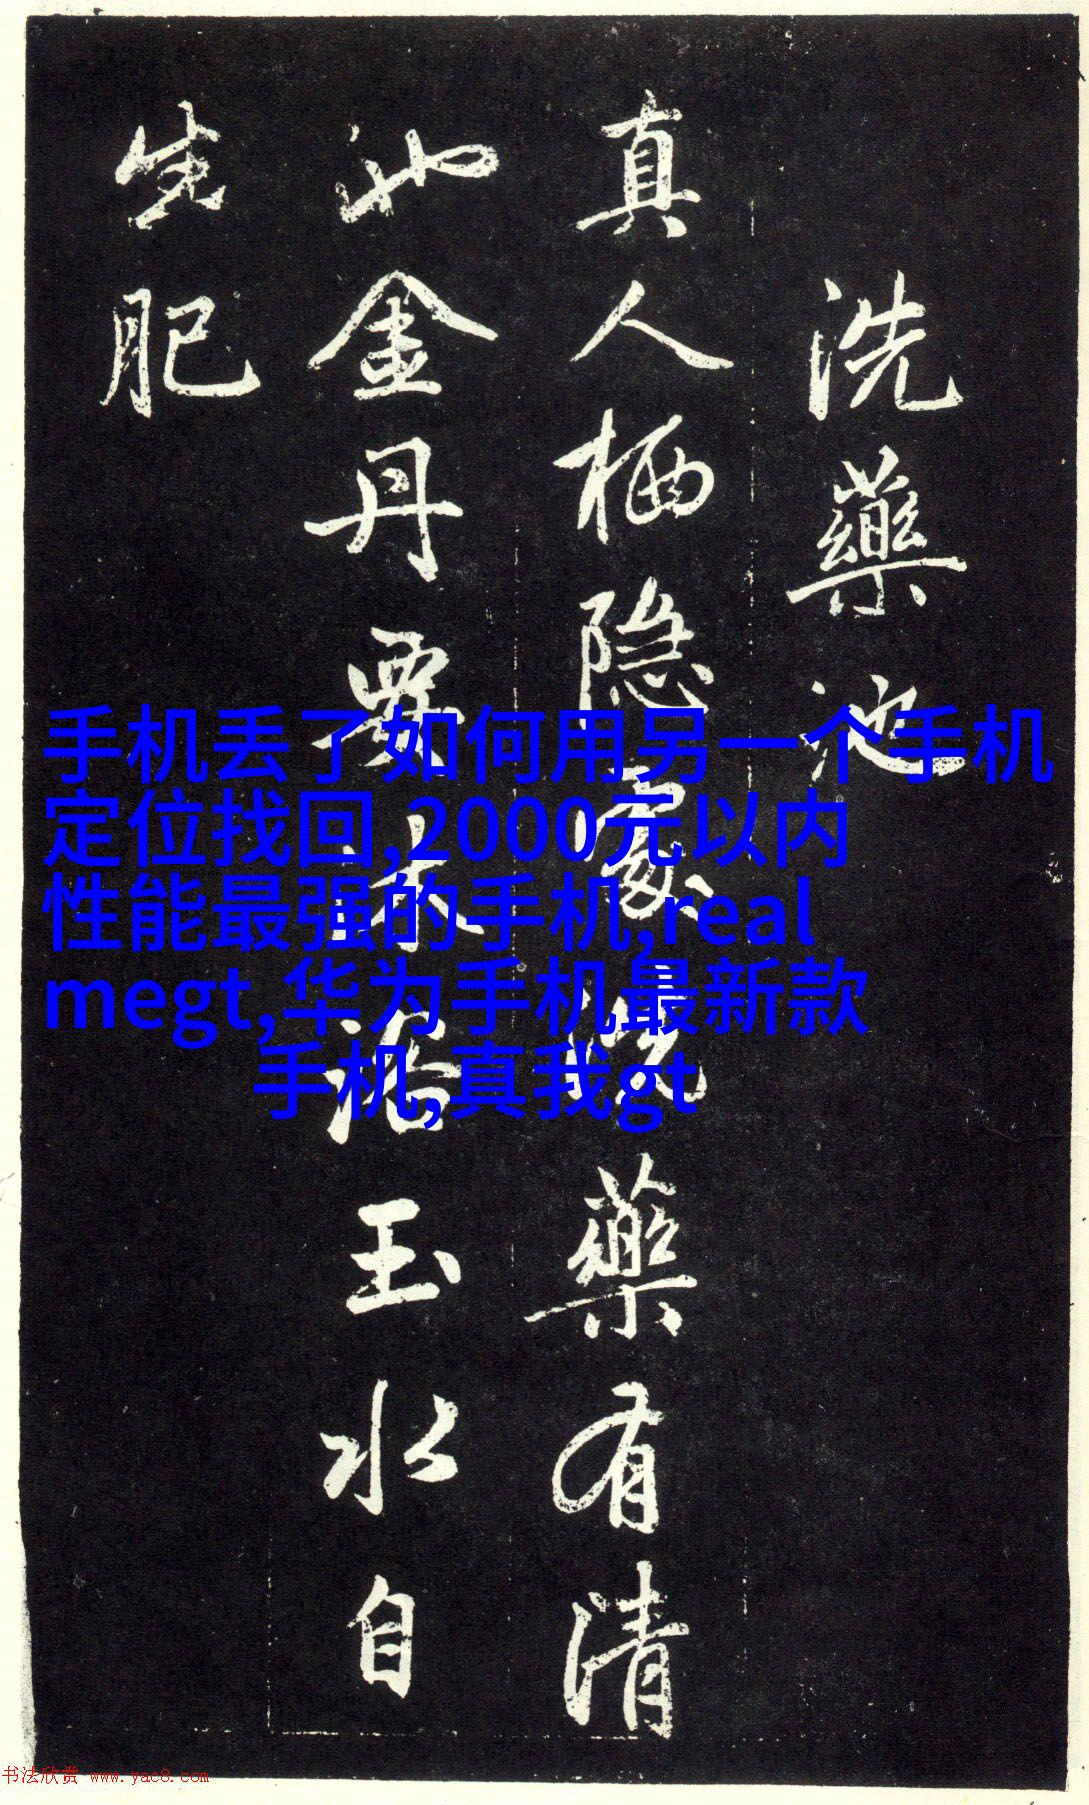 洗藥池
真人栖隱處洗藥有清
池金丹要沐浴玉水自
生肥
手机丢了如何用另一个手机
定位找回,2000元以内
性能最强的手机,real
megt,华为手机最新款
手机,真我gt
书法欣赏 www.yac8.com